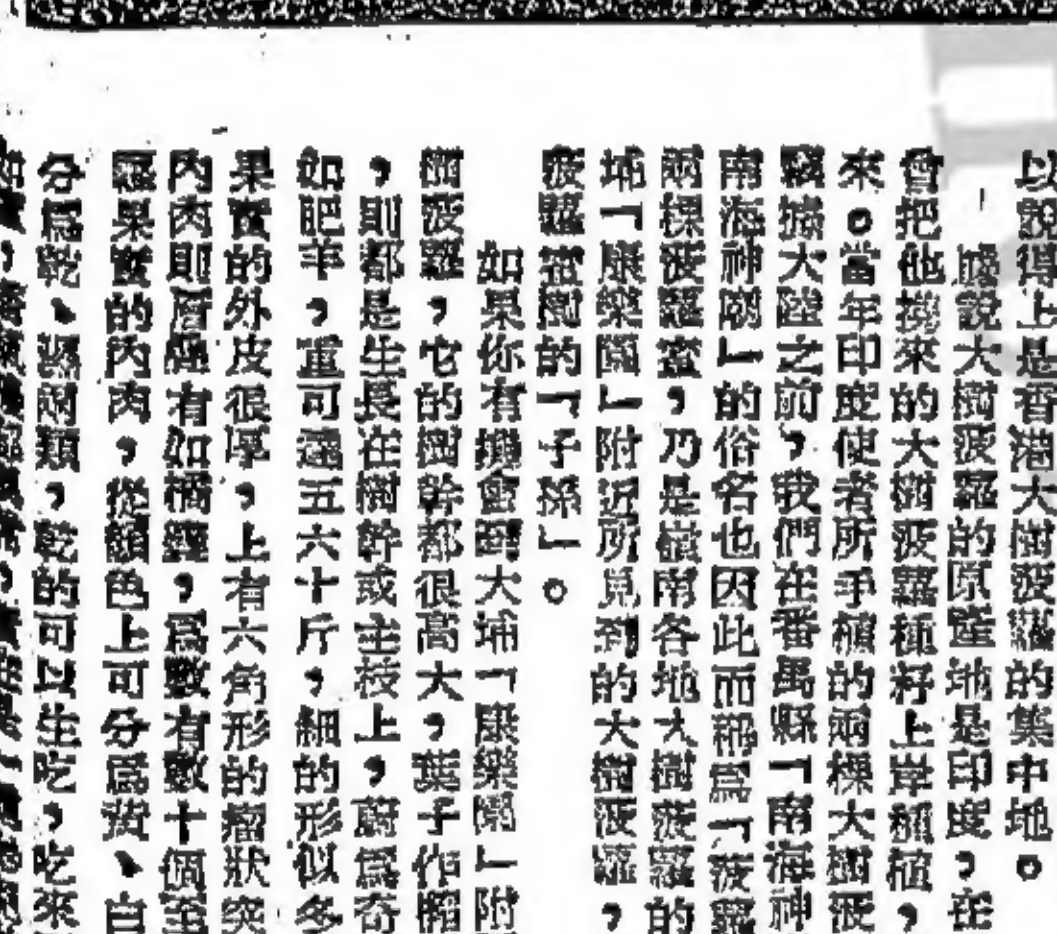 以說得上是香港大樹菠蘿的集中地。
據說大樹菠蘿的原產地是印度,在
會把他撈來的大樹菠蘿種籽上岸種植,
來。當年印度使者所手植的兩棵大樹菠
大陸之前,我們在番禺縣「南海神
南海神廟」的俗名也因此而稱爲「菠蘿
兩棵菠蘿蜜,乃是嶺南各地大樹菠蘿的
埔「康樂園」附近所見到的大樹菠蘿,
菠蘿蜜樹的「子孫」。
如果你有機會到大埔「康樂園」附
樹菠蘿,它的樹幹都很高大,葉子作橢
,則都是生長在樹幹或主枝上,蔚爲奇
如肥羊,重可達五六十斤,細的形似冬
果實的外皮很厚,上有六角形的瘤狀突
內肉則層疊有如橘瓣,爲數有數十個至
蘿果實的內肉,從顏色上可分爲黃、白
分爲乾、濕兩類,乾的可以生吃,吃來